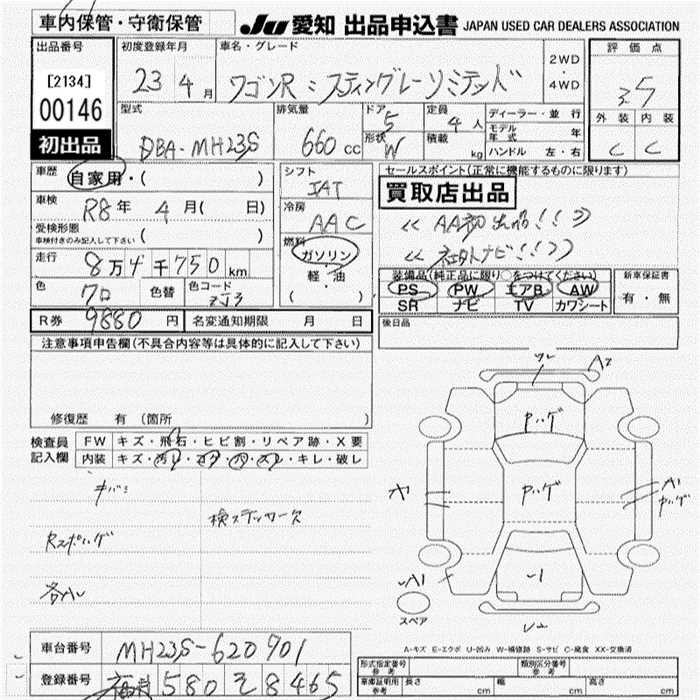 車内保管・守衛保管
JU 愛知 出品申込書 JAPAN USED CAR DEALERS ASSOCIATION
出品番号
[2134]
00146
初出品
初度登録年月
23 4月
車名・グレード
ワゴンR:スティングレーリミテッド
2WD
・
4WD
評価点
3.5
外装 内装
C C
型式
DBA-MH23S
排気量
660cc
ドア
5
形状
W
定員
4人
積載
kg
ディーラー・並行
モデル年式 年
ハンドル 左・右
車歴
自家用・( )
車検
R8年 4月( 日)
受検形態
車検付きのみ記入して下さい ( )
走行
8万4千750km
色
クロ
色替
色コード
ZJ3
シフト
IAT
冷房
AAC
燃料
ガソリン
・
軽・油
( )
セールスポイント(正常に機能するものに限ります)
買取店出品
<< AA初出品!!>>
<< 社外ナビ!!>>
装備品(純正品に限り○をつけてください)
PS PW エアB AW
SR ナビ TV カワシート
新車保証書
有・無
R券 9880円
名変通知期限 月 日
後日品
注意事項申告欄(不具合内容等は具体的に記入して下さい)
修復歴 有(箇所 )
検査員
記入欄
FW キズ・飛石・ヒビ割・リペア跡・X要
内装 キズ・汚レ・コゲ・穴・スレ・キレ・破レ
キバミ
検ステッカー欠
Rスポハゲ
各小
A2
Pハゲ
Pハゲ
A1
Pハゲ
-1
スペア
A-キズ E-エクボ U-凹み W-補修跡 S-サビ C-腐食 XX-交換済
車台番号 MH23S-620901
登録番号 580 そ 8465
形式指定番号
参考
類別区分番号
参考
車庫証明用
参考
長さ cm 幅 cm 高さ cm